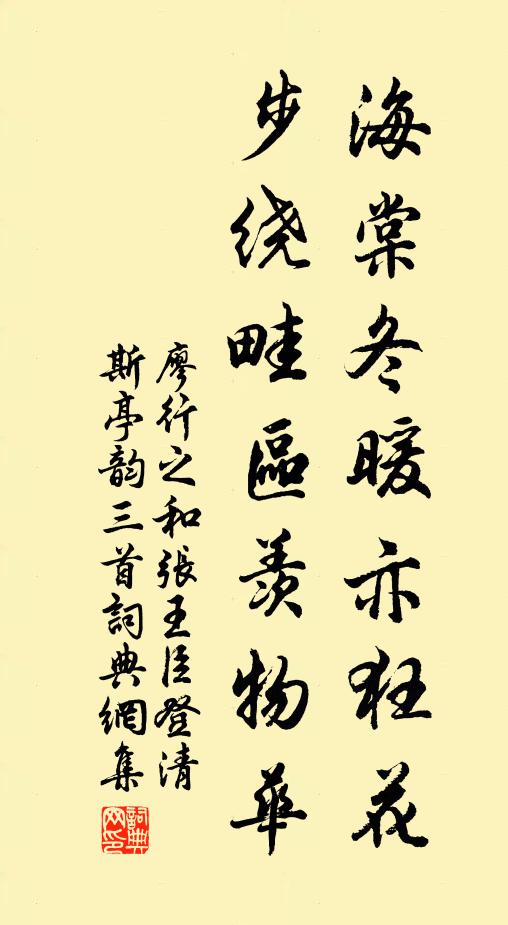 海棠冬暖亦狂花
步绕畦區羡物華
廖行之和張王臣登清
斯亭韵三首詞典網集
詞典网印